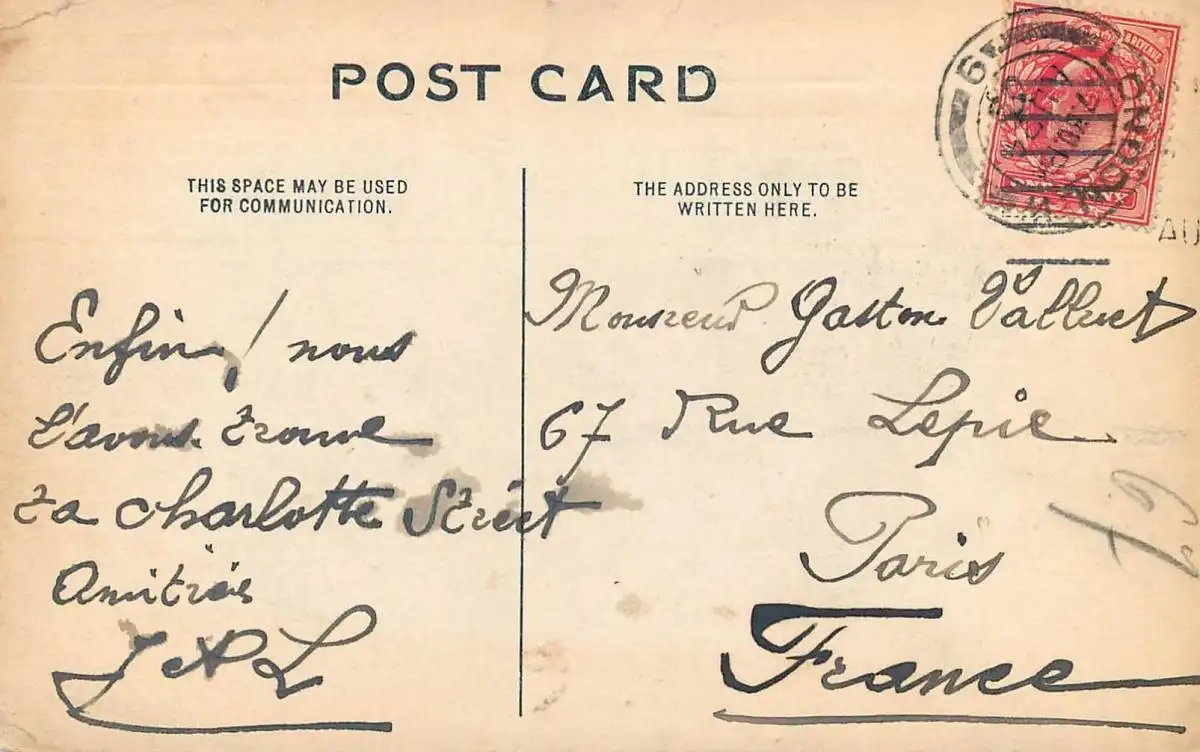 POST CARD
THIS SPACE MAY BE USED
FOR COMMUNICATION.
THE ADDRESS ONLY TO BE
WRITTEN HERE.
LONDON
Enfin! nous
l'avons trouvé
ta Charlotte Street
Amitiés
J A L
Monsieur Gaston
67 Rue Lepic
Paris
France
67